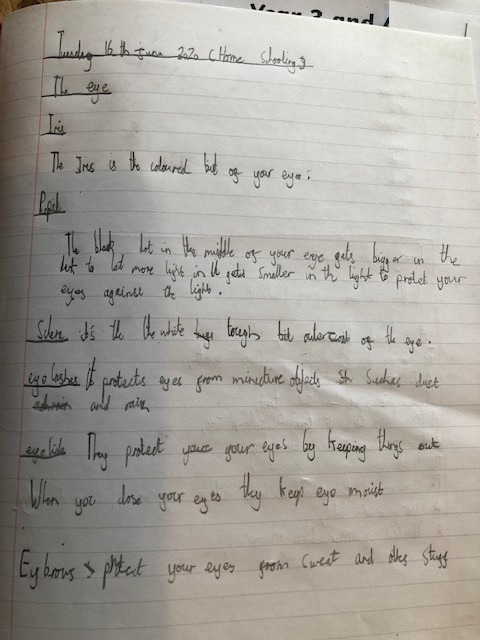 Year 3 and
Tuesday 16th june 2020 (Home Shooling)
The eye
Iris
The Ires is the coloured bit of your eye.
Pupil
The black bot in the middle of your eye gets bigger in the
to let more light in it gets Smaller in the light to protect your
eyes against the light.
Sclera it's the the white tough but outer coat of the eye.
eyelashes it protects eyes from minicture objects Suchas dust
and rain
eyelids They protect your eyes by keeping things out
When you close your eyes they keep eye moist
Eybrows > protect your eyes from Sweat and othes Stuff